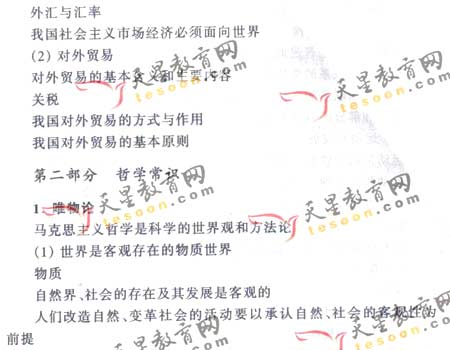 外汇与汇率
我国社会主义市场经济必须面向世界
(2) 对外贸易
对外贸易的基本含义和主要内容
关税
我国对外贸易的方式与作用
我国对外贸易的基本原则
第二部分 哲学常识
1. 唯物论
马克思主义哲学是科学的世界观和方法论
(1) 世界是客观存在的物质世界
物质
自然界、社会的存在及其发展是客观的
人们改造自然、变革社会的活动要以承认自然、社会的客观性为
前提
天星教育网
tesoon.com
天星教育网
tesoon.com
天星教育网
tesoon.com
天星教育网
tesoon.com
天星教育网
tesoon.com
天星教育网
tesoon.com